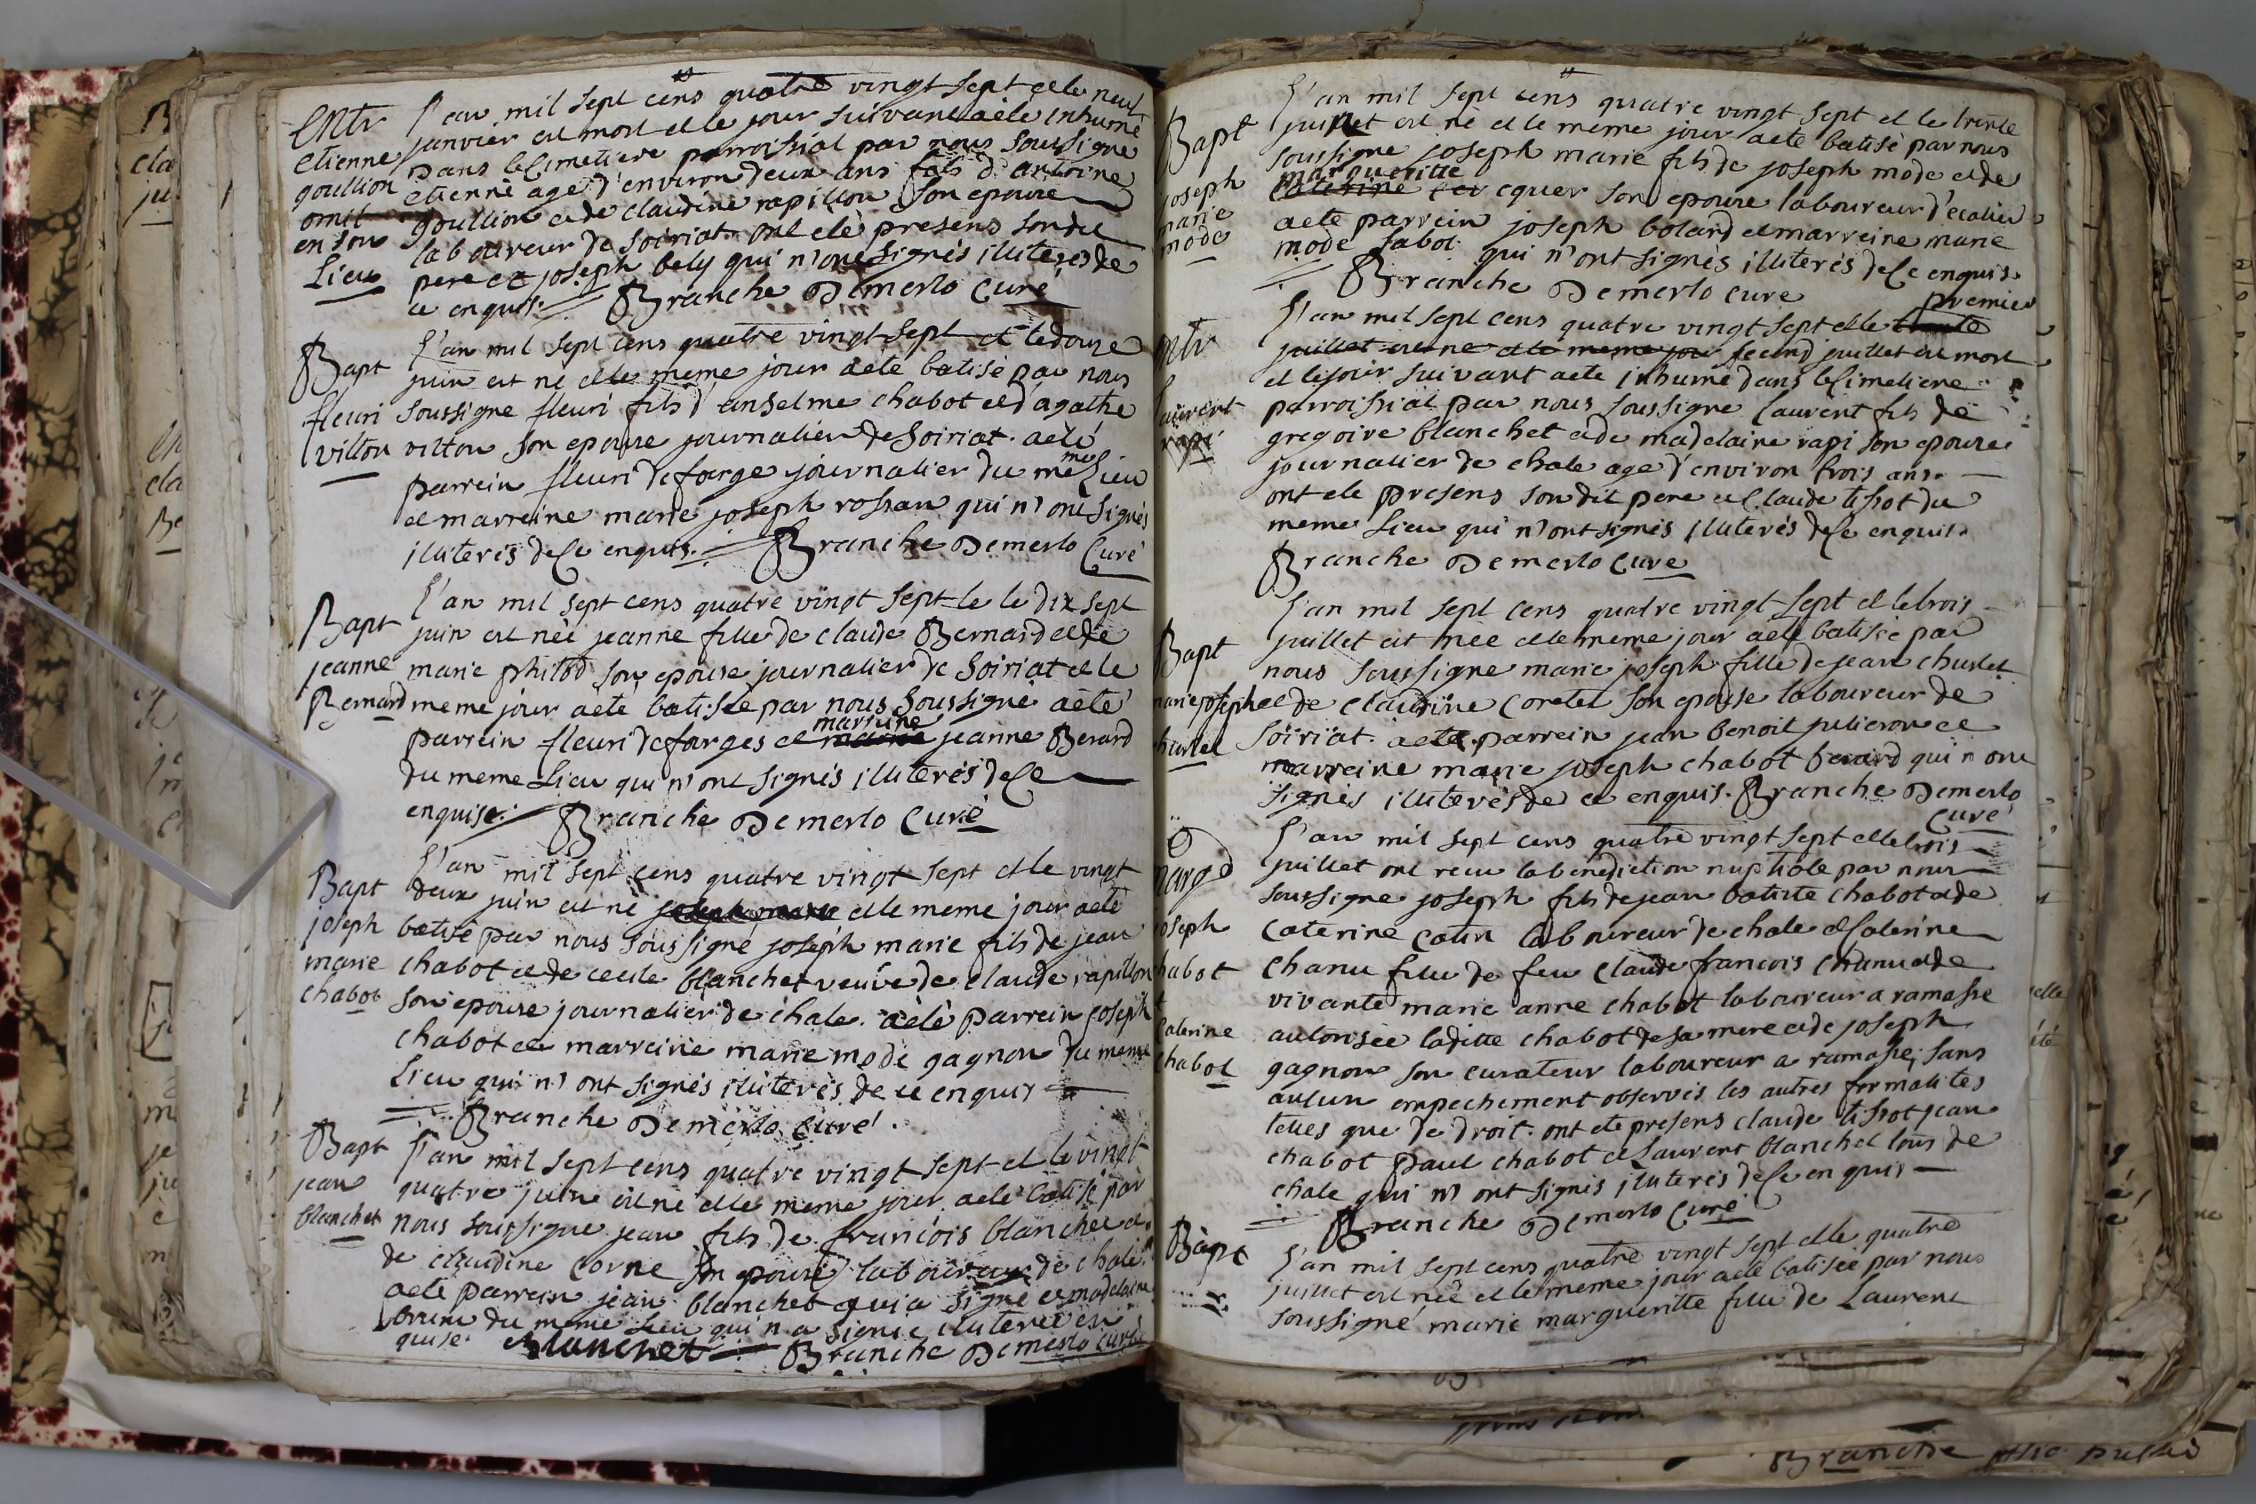 Entr
etienne
goullion
omis
en son
Lieu
L'an mil sept cens quatre vingt sept et le neuf
janvier est mort et le jour suivant a été inhumé
dans le Cimetiere parroissial par nous soussigné
etienne agé d'environ deux ans fils d'antoine
goullion et de claudine rapillon son epouse
laboureur de soiriat ont eté presens sondit
pere et joseph bely qui n'ont signés illiterés de
ce enquis. Branche Demerlo Curé
Bapt
fleuri
vitton
L'an mil sept cens quatre vingt sept et le douze
juin est né et le meme jour a eté batisé par nous
soussigné fleuri fils d'anselme chabot et d'agathe
vitton son epouse journalier de Soiriat. a eté
parrein fleuri deforge journalier du meme Lieu
et marreine marie joseph rossan qui n'ont signés
illiterés de Ce enquis. Branche Demerlo Curé
Bapt
jeanne
Bernard
L'an mil sept cens quatre vingt sept le le dix sept
juin est née jeanne fille de claude Bernard et de
marie philod son epouse journalier de Soiriat et le
meme jour a eté batisée par nous Soussigné a eté
marreine
parrein fleuri deforges et jeanne Berard
du meme Lieu qui n'ont signés illiterés de Ce
enquise. Branche Demerlo Curé
Bapt
joseph
marie
chabot
L'an mil sept cens quatre vingt sept et le vingt
deux juin est né joseph marie et le meme jour a eté
batisé par nous soussigné joseph marie fils de jean
chabot et de cecile blanchet veuve de claude rapillon
son epouse journalier de chale. a eté parrein joseph
chabot et marreine marie mode gagnon du meme
Lieu qui n'ont signés illiterés de ce enquis
Branche Demerlo Curé.
Bapt
jean
blanchet
L'an mil sept cens quatre vingt sept et le vingt
quatre juin est né et le meme jour a eté batisé par
nous soussigné jean fils de francois blanchet et
de claudine Corne son epouse laboureur de chale.
a eté parrein jean blanchet qui a signé et madelaine
brun du meme lieu qui n'a signé illiterée en
quise. Blanchet Branche Demerlo curé
Bapt
joseph
marie
mode
L'an mil sept cens quatre vingt sept et le trente
juillet est né et le meme jour a eté batisé par nous
soussigné joseph marie fils de joseph mode et de
margueritte
caterine cequer son epouse laboureur d'
a eté parrein joseph bolard et marreine marie
mode Jabot qui n'ont signés illiterés de Ce enquis.
Branche Demerlo curé
premier
Entr
laurent
rapi
L'an mil sept cens quatre vingt sept et le trente
juillet est né et le meme jour second juillet est mort
et le jour suivant a eté inhumé dans le Cimetiere
parroissial par nous soussigné laurent fils de
gregoire blanchet et de madelaine rapi son epouse
journalier de chale agé d'environ trois ans.
ont eté presens son dit pere et Claude tissot du
meme Lieu qui n'ont signés illiterés de Ce enquis.
Branche Demerlo Curé
Bapt
marie joseph
churlet
L'an mil sept cens quatre vingt sept et le trois
juillet est née et le meme jour a eté batisée par
nous soussigné marie joseph fille de jean churlet
et de claudine Coretet son epouse laboureur de
Soiriat. a eté parrein jean benoit julieron et
marreine marie joseph chabot berard qui n'ont
signés illiterés de ce enquis. Branche Demerlo
Curé
joseph
chabot
et
Caterine
Chabot
L'an mil sept cens quatre vingt sept et le trois
juillet ont recu la benediction nuptiale par nous
soussigné joseph fils de jean batiste chabot et de
Caterine catin laboureur de chale et Caterine
Chanu fille de feu Claude francois Chanu et de
vivante marie anne chabot laboureur a ramasse
autorisée laditte chabot de sa mere et de joseph
gagnon son curateur laboureur a ramasse, sans
aucun empechement observés les autres formalités
telles que de droit. ont eté presens claude tissot jean
chabot paul chabot et Laurent blanchet tous de
chale qui n'ont signés illiterés de Ce enquis
Branche Demerlo Curé
Bapt
L'an mil sept cens quatre vingt sept et le quatre
juillet est née et le meme jour a eté batisée par nous
soussigné marie margueritte fille de Laurent